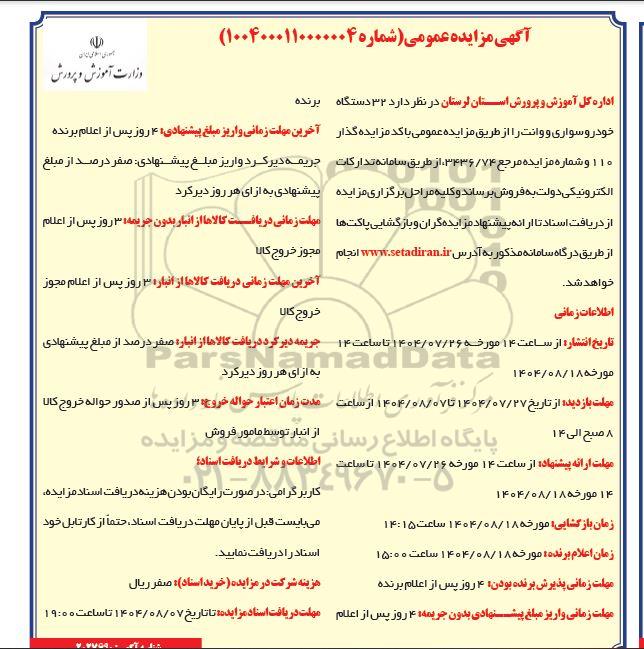 آگهی مزایده عمومی(شماره ۱۰۰۴۰۰۰۱۱۰۰۰۰۰۰۴)
جمهوری اسلامی ایران
وزارت آموزش و پرورش
اداره کل آموزش و پرورش استان لرستان در نظر دارد ۳۲ دستگاه
خودرو سواری و وانت را از طریق مزایده عمومی با کد مزایده گذار
۱۱۰ و شماره مزایده مرجع ۳۴۳۶/۷۴، از طریق سامانه تدارکات
الکترونیکی دولت به فروش برساند و کلیه مراحل برگزاری مزایده
از دریافت اسناد تا ارائه پیشنهاد مزایده گران و بازگشایی پاکت‌ها
از طریق درگاه سامانه مذکور به آدرس www.setadiran.ir انجام
خواهد شد.
اطلاعات زمانی
تاریخ انتشار: از ساعت ۱۴ مورخه ۱۴۰۴/۰۷/۲۶ تا ساعت ۱۴
مورخه ۱۴۰۴/۰۸/۱۸
مهلت بازدید: از تاریخ ۱۴۰۴/۰۷/۲۷ تا ۱۴۰۴/۰۸/۰۷ از ساعت
۸ صبح الی ۱۴
مهلت ارائه پیشنهاد: از ساعت ۱۴ مورخه ۱۴۰۴/۰۷/۲۶ تا ساعت
۱۴ مورخه ۱۴۰۴/۰۸/۱۸
زمان بازگشایی: مورخه ۱۴۰۴/۰۸/۱۸ ساعت ۱۴:۱۵
زمان اعلام برنده: مورخه ۱۴۰۴/۰۸/۱۸ ساعت ۱۵:۰۰
مهلت زمانی پذیرش برنده بودن: ۴ روز پس از اعلام برنده
مهلت زمانی واریز مبلغ پیشنهادی بدون جریمه: ۴ روز پس از اعلام
برنده
آخرین مهلت زمانی واریز مبلغ پیشنهادی: ۴ روز پس از اعلام برنده
جریمه دیرکرد واریز مبلغ پیشنهادی: صفر درصد از مبلغ
پیشنهادی به ازای هر روز دیرکرد
مهلت زمانی دریافت کالاها از انبار بدون جریمه: ۳ روز پس از اعلام
مجوز خروج کالا
آخرین مهلت زمانی دریافت کالاها از انبار: ۳ روز پس از اعلام مجوز
خروج کالا
جریمه دیرکرد دریافت کالاها از انبار: صفر درصد از مبلغ پیشنهادی
به ازای هر روز دیرکرد
مدت زمان اعتبار حواله خروج: ۳ روز پس از صدور حواله خروج کالا
از انبار توسط مامور فروش
اطلاعات و شرایط دریافت اسناد؛
کاربر گرامی: در صورت رایگان بودن هزینه دریافت اسناد مزایده،
می‌بایست قبل از پایان مهلت دریافت اسناد، حتماً از کارتابل خود
اسناد را دریافت نمایید.
هزینه شرکت در مزایده (خرید اسناد): صفر ریال
مهلت دریافت اسناد مزایده: تا تاریخ ۱۴۰۴/۰۸/۰۷ تا ساعت ۱۹:۰۰
ParsNamadData
پایگاه اطلاع رسانی مناقصه و مزایده
۰۲۱-۸۸۳۴۹۶۷۰-۵